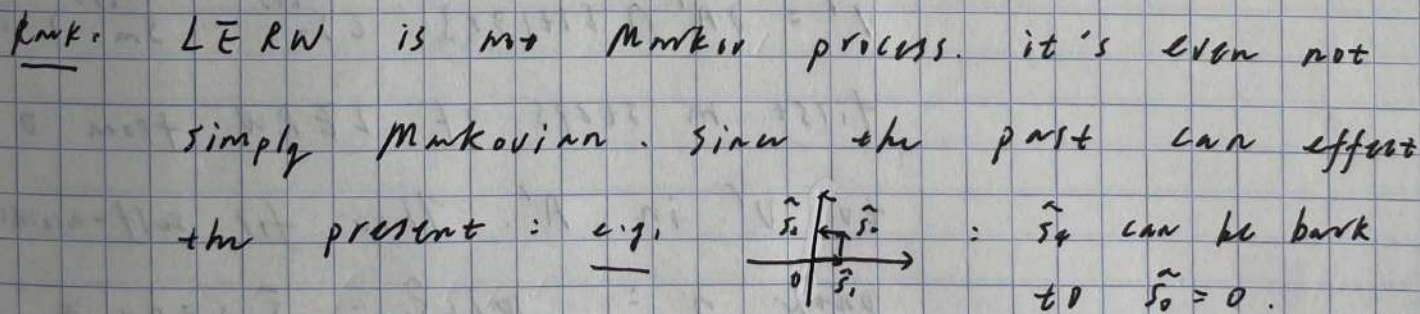 Rmk. LERW is not Markov process. it's even not
simply Markovian. Since the past can effect
the present : e.g. 0 S̃₁ S̃₂ S̃₃ : S̃₄ can be back
to S̃₀ = 0.